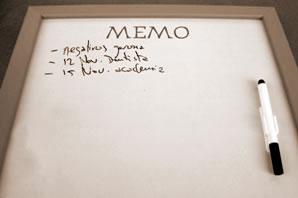 MEMO
- negativos
- 12 Nov. Dentista
- 15 Nov. academia